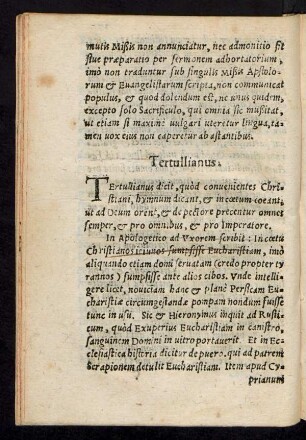 mutis Missis non annunciatur, nec admonitio fit
siue præparatio per sermonem adhortatorium,
imò non traduntur sub singulis Missis Apostolo-
rum & Euangelistarum scripta, non communicat
populus, & quod dolendum est, ne unus quidem,
excepto solo Sacrificulo, qui omnia sic mussitat,
ut etiam si maximè uulgari uteretur lingua, ta-
men uox eius non caperetur ab astantibus.
Tertullianus.
TErtullianus dicit, quòd conuenientes Chri-
stiani, hymnum dicant, & in cœtum coeant,
ut ad Deum orent, & de pectore precentur omnes
semper, & pro omnibus, & pro Imperatore.
In Apologetico ad Vxorem scribit: In cœtu
Christianos ieiunos sumpsisse Eucharistiam, imò
aliquando etiam domi seruadam (credo propter ty-
rannos) sumpsisse ante alios cibos. Vnde intelli-
gere licet, nouiciam hanc & planè Persicam Eu-
charistiæ circumgestandæ pompam nondum fuisse
tunc in usu. Sic & Hieronymus inquit ad Rusti-
cum, quòd Exuperius Eucharistiam in canistro,
sanguinem Domini in uitro portauerit. Et in Ec-
clesiastica historia dicitur de puero, qui ad patrem
Serapionem detulit Eucharistiam. Item apud Cy-
prianum